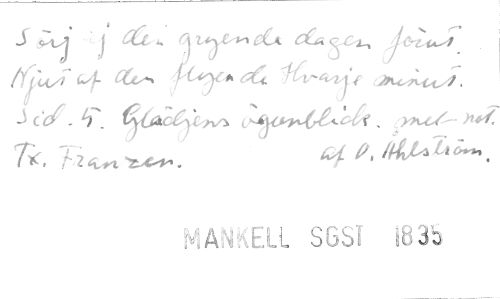 Sörj ej den gryende dagen förut.
Njut af den flyende Hvarje minut.
Sid. 5. Glädjens ögonblick. met not.
Tx. Franzen. af O. Ahlström.
MANKELL SGST 1835